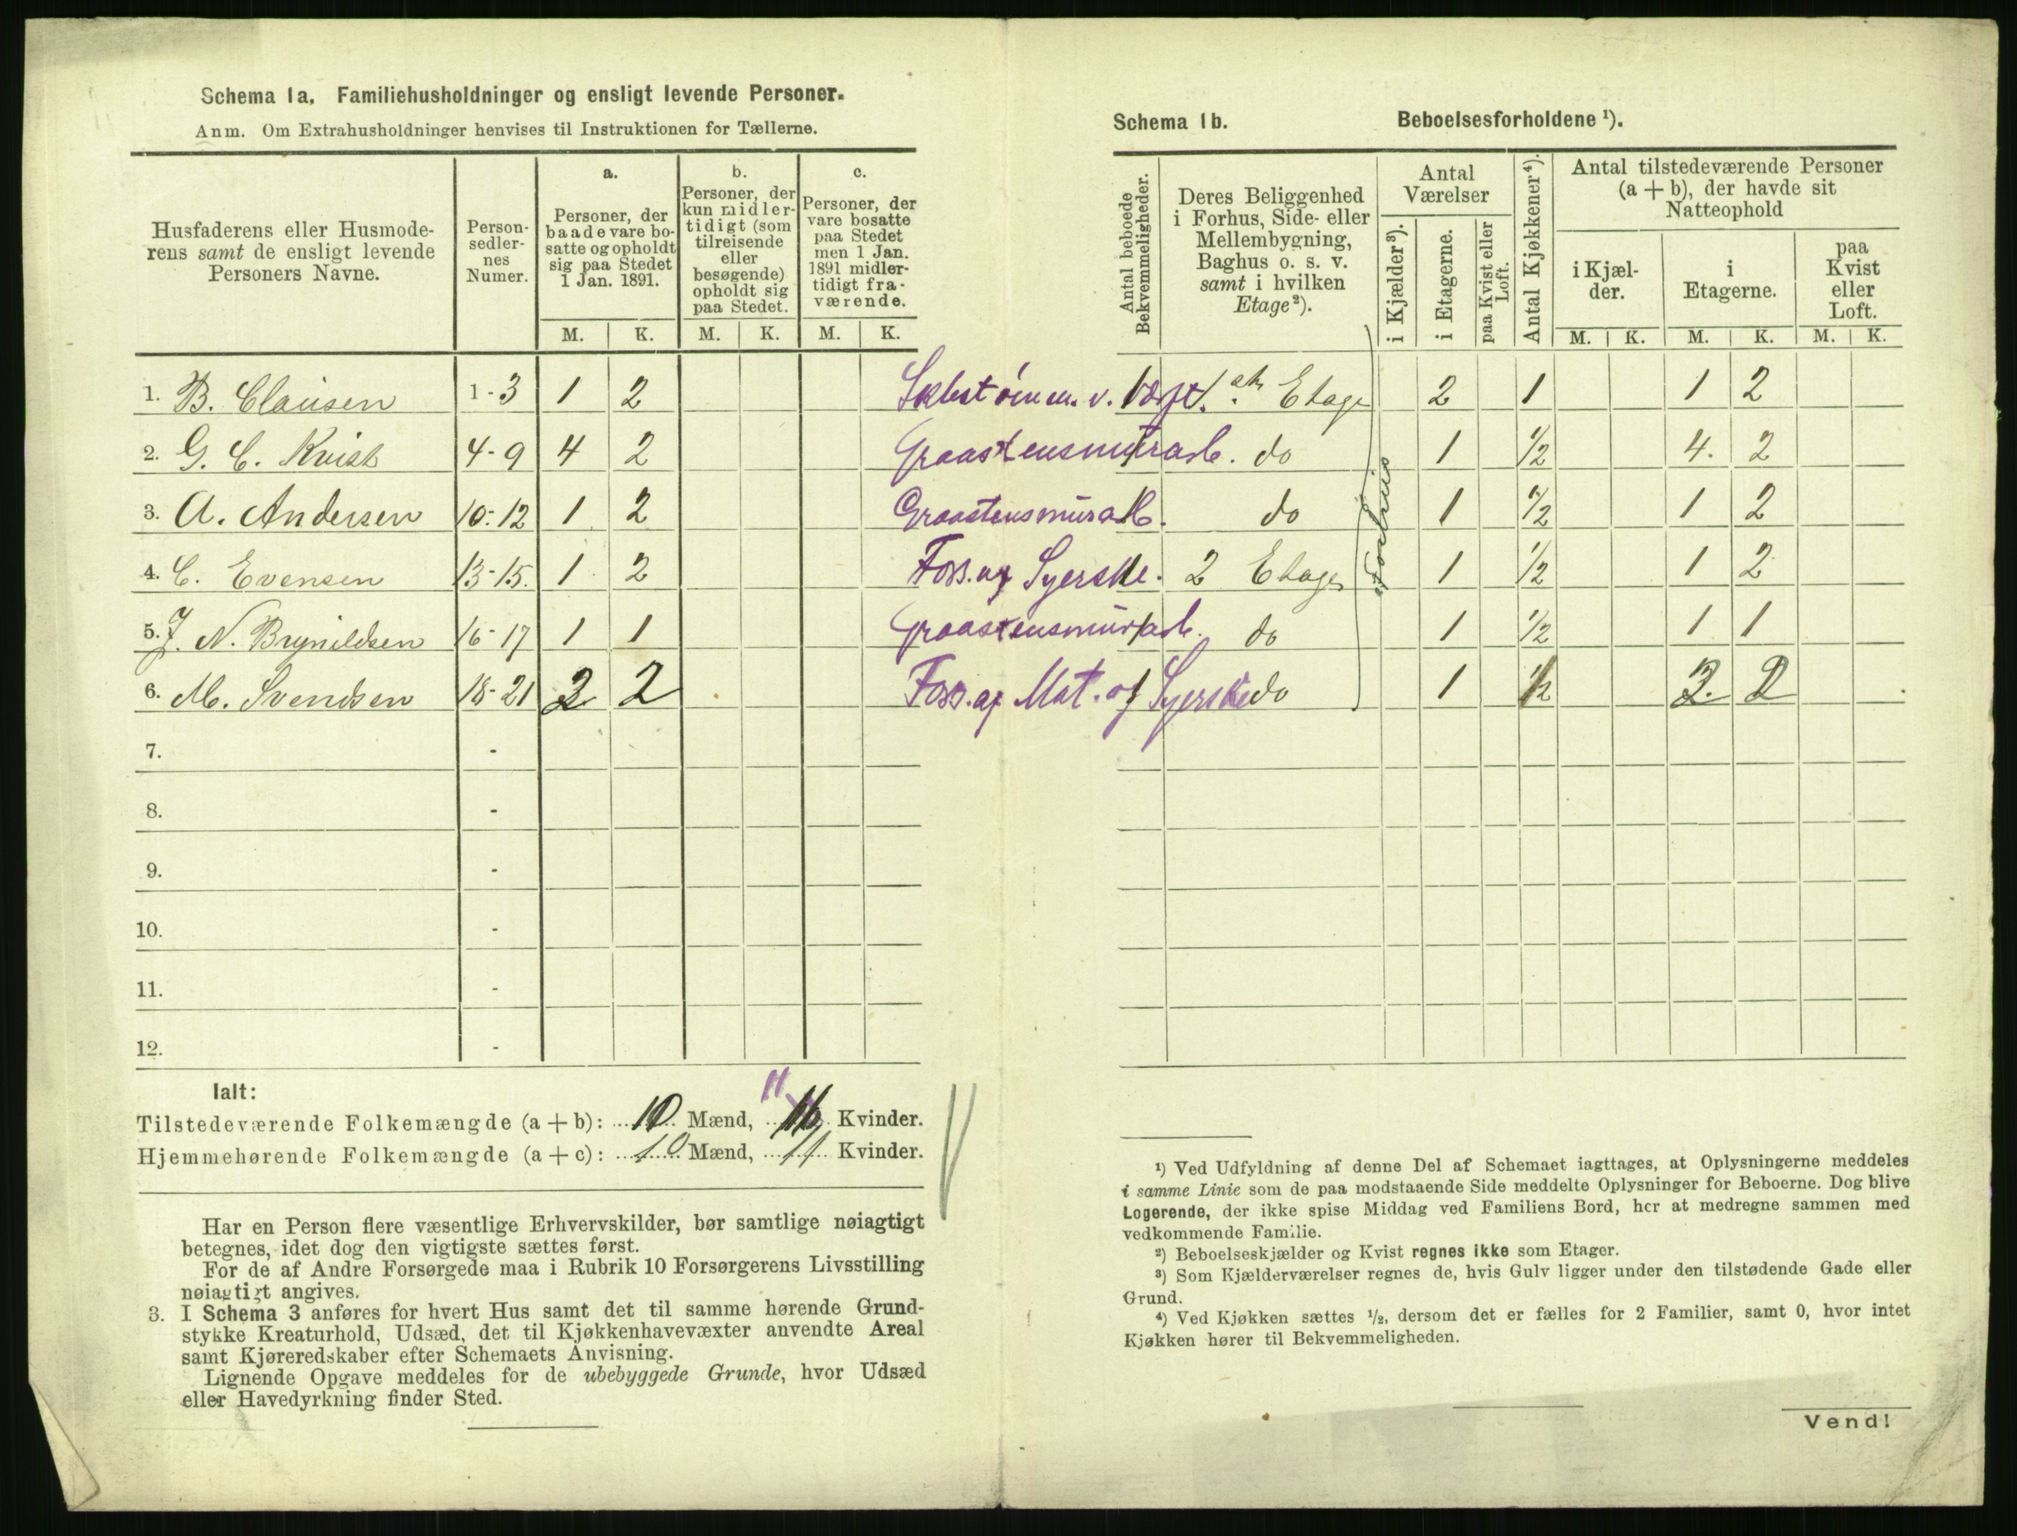 Schema 1a. Familiehusholdninger og ensligt levende Personer.
Anm. Om Extrahusholdninger henvises til Instruktionen for Tællerne.
Husfaderens eller Husmoderens samt de ensligt levende Personers Navne.
Person-sedler-nes Numer.
a.
Personer, der baade vare bosatte og opholdt sig paa Stedet 1 Jan. 1891.
b.
Personer, der kun midlertidigt (som tilreisende eller besøgende) opholdt sig paa Stedet.
c.
Personer, der vare bosatte paa Stedet men 1 Jan. 1891 midlertidigt fraværende.
M. K. M. K. M. K.
1. B. Clausen 1-3 1 2
2. G. C. Kvist 4-9 4 2
3. A. Andersen 10-12 1 2
4. C. Evensen 13-15. 1 2
5. J. N. Brynildsen 16-17 1 1
6. M. Svendsen 18-21 2 2
7. -
8. -
9. -
10. -
11. -
12. -
Ialt:
11
Tilstedeværende Folkemængde (a + b): 10 Mænd, Kvinder.
Hjemmehørende Folkemængde (a + c): 10 Mænd, 11 Kvinder.
Har en Person flere væsentlige Erhvervskilder, bør samtlige nøiagtigt
betegnes, idet dog den vigtigste sættes først.
For de af Andre Forsørgede maa i Rubrik 10 Forsørgerens Livsstilling
nøiagtigt angives.
3. I Schema 3 anføres for hvert Hus samt det til samme hørende Grund-
stykke Kreaturhold, Udsæd, det til Kjøkkenhavevæxter anvendte Areal
samt Kjøreredskaber efter Schemaets Anvisning.
Lignende Opgave meddeles for de ubebyggede Grunde, hvor Udsæd
eller Havedyrkning finder Sted.
Schema 1b. Beboelsesforholdene ¹).
Antal beboede Bekvemmeligheder.
Deres Beliggenhed i Forhus, Side- eller Mellembygning, Baghus o. s. v. samt i hvilken Etage²).
Antal Værelser
i Kjælder³).
i Etagerne.
paa Kvist eller Loft.
Antal Kjøkkener⁴).
Antal tilstedeværende Personer (a + b), der havde sit Natteophold
i Kjælder.
i Etagerne.
paa Kvist eller Loft.
M. K. M. K. M. K.
1 Etage 2 1 1 2
Graastensmurarb. 1 do 1 1/2 4. 2
Graastensmurarb. 1 do 1 1/2 1 2
Fors. af Syerske. 1 2 Etage 1 1/2 1 2
Graastensmurarb. 1 do 1 1/2 1 1
Fors. af Mat. og Syerske 1 do 1 1/2 2 2
Forhus
¹) Ved Udfyldning af denne Del af Schemaet iagttages, at Oplysningerne meddeles
i samme Linie som de paa modstaaende Side meddelte Oplysninger for Beboerne. Dog blive
Logerende, der ikke spise Middag ved Familiens Bord, her at medregne sammen med
vedkommende Familie.
²) Beboelseskjælder og Kvist regnes ikke som Etager.
³) Som Kjælderværelser regnes de, hvis Gulv ligger under den tilstødende Gade eller
Grund.
⁴) Ved Kjøkken sættes ½, dersom det er fælles for 2 Familier, samt 0, hvor intet
Kjøkken hører til Bekvemmeligheden.
Vend!